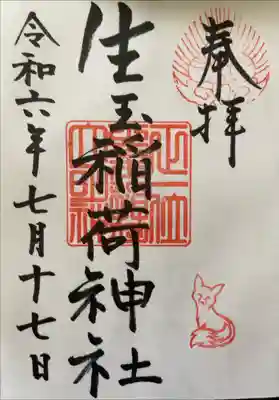 奉拝
生玉稲荷神社
令和六年七月十七日